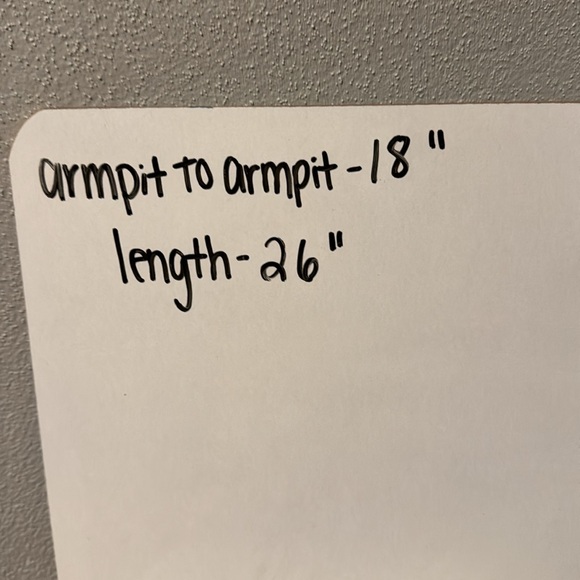 armpit to armpit - 18 "
length - 26 "